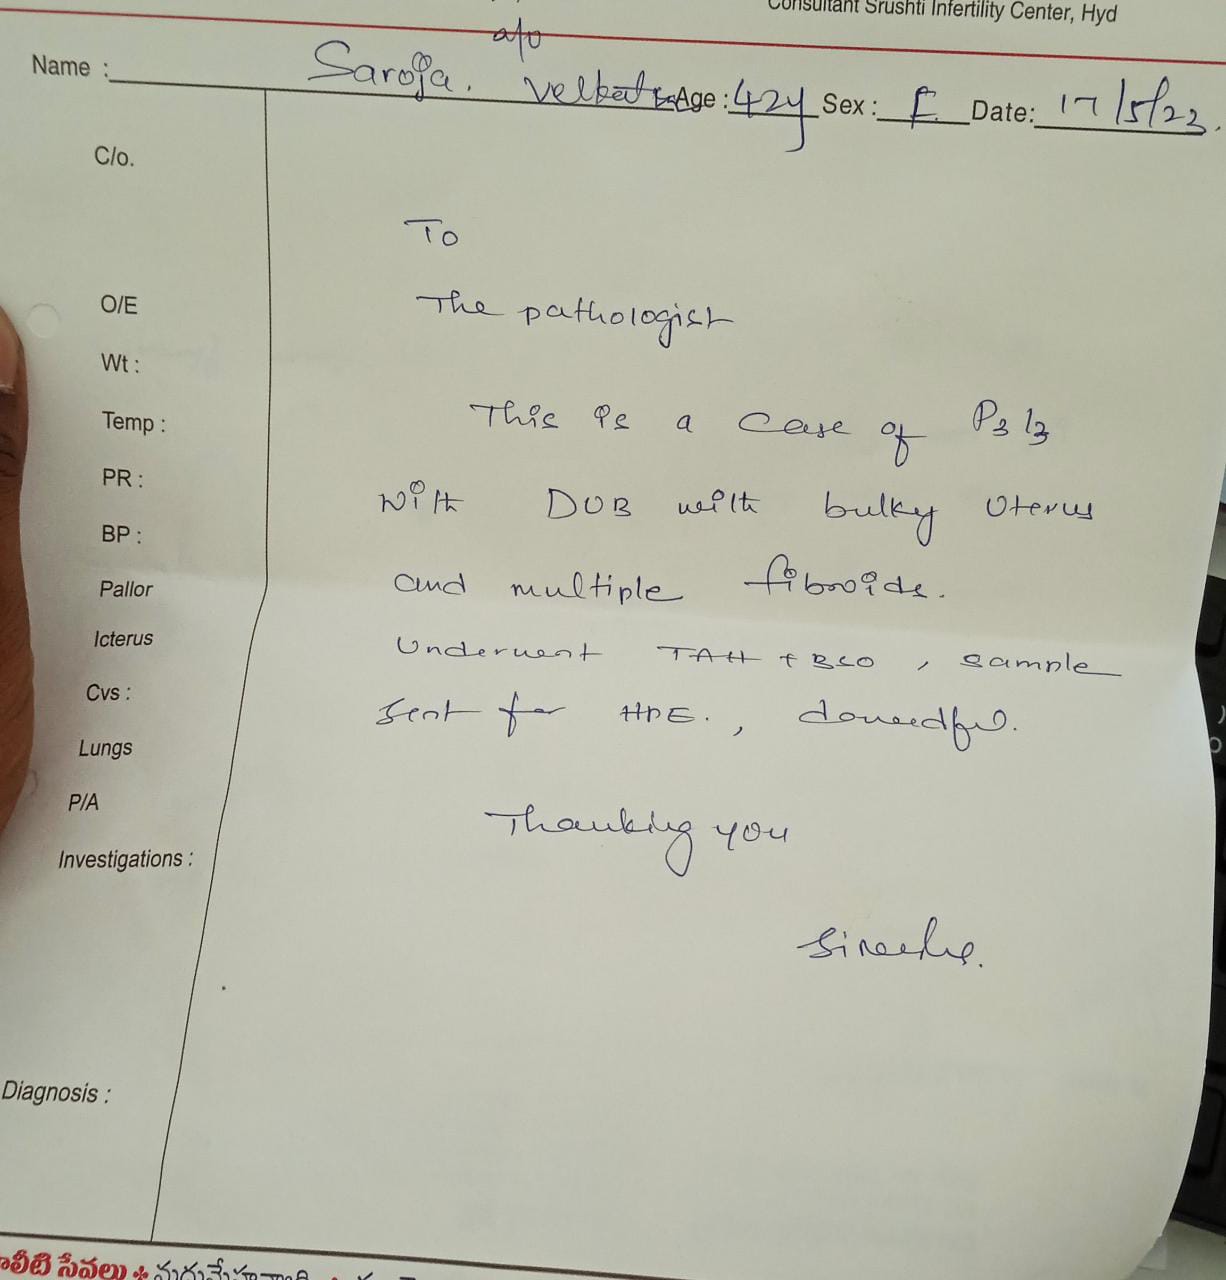 Consultant Srushti Infertility Center, Hyd
Name : Saroja. a/o Age : 42y Sex : F. Date: 17/5/23.
C/o.
To
O/E
The pathologist
Wt :
Temp :
This is a case of P3 l3
PR :
with DUB with bulky Uterus
BP :
Pallor
and multiple fibroids.
Icterus
Underwent TAH + BSO , sample
Cvs :
sent for HPE. , doneedful.
Lungs
P/A
Thanking you
Investigations :
Diagnosis :
సేవలు